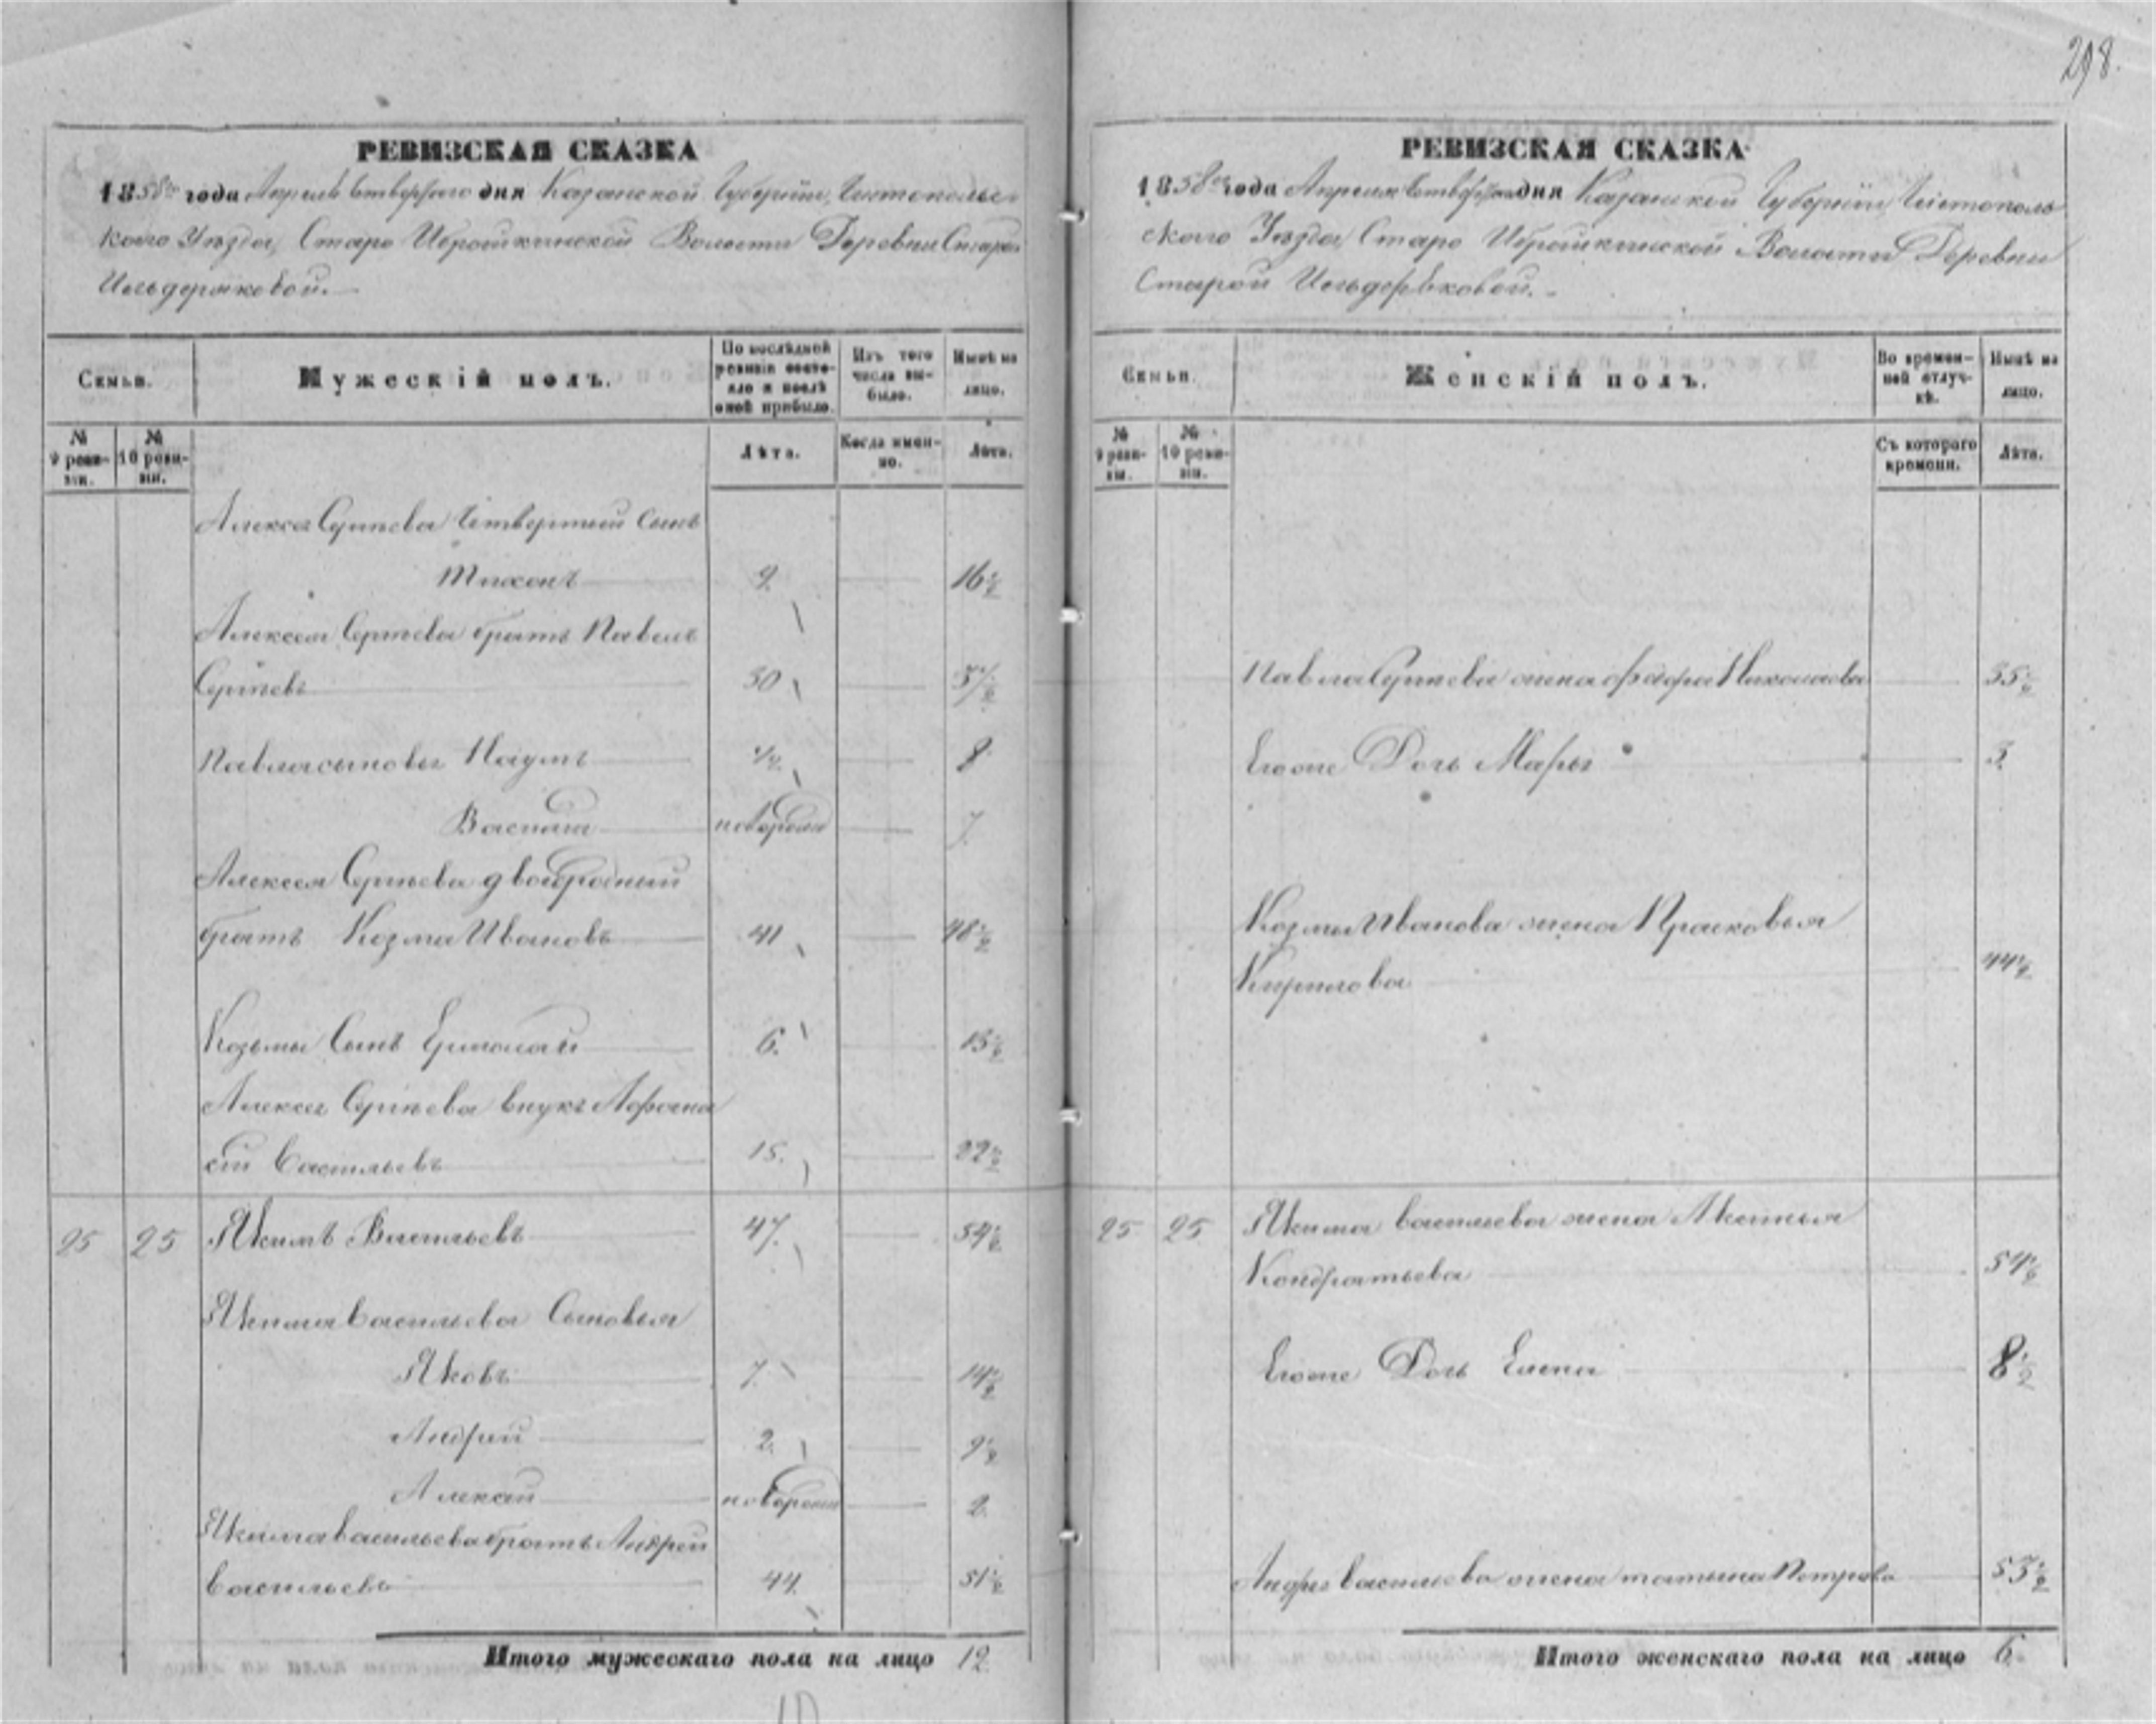 298.
РЕВИЗСКАЯ СКАЗКА
1858го года Апреля Четвертаго дня Казанской Губернiи, Чистопольс-
каго Уѣзда, Старо Иброшкинской Волости Деревни Старой
Ильдеряковой.
Семьи.
Мужескiй полъ.
По послѣдней ревизiи состо-
яло и послѣ оной прибыло.
Изъ того числа вы-
было.
Нынѣ на лицо.
№ 9 реви-
зiи.
№ 10 реви-
зiи.
Лѣта.
Когда имен-
но.
Лѣта.
Алексея Сергѣева Четвертый Сынъ
Тихонъ 9. 16½
Алексея Сергѣева братъ Павелъ
Сергѣевъ 30
Павла сыновья Наумъ ½ 8
Василiй новорожд 7.
Алексея Сергѣева двоюродный
братъ Козма Ивановъ 41 48½
Козьмы Сынъ Ермолай 6. 13½
Алексея Сергѣева внукъ Афана
сiй Васильевъ 15. 22½
25 25 Якимъ Васильевъ 47. 54½
Якима Васильева Сыновья
Яковъ 7. 14½
Андрей 2. 9½
Алексей новорожд 2.
Якима Васильева братъ Андрей
Васильевъ 44. 51½
Итого мужескаго пола на лицо 12
РЕВИЗСКАЯ СКАЗКА
1858го года Апреля Четвертаго дня Казанской Губернiи, Чистополь
скаго Уѣзда, Старо Иброшкинской Волости Деревни
Старой Ильдеряковой.
Семьи.
Женскiй полъ.
Во времен-
ной отлуч-
кѣ.
Нынѣ на лицо.
№ 9 реви-
зiи.
№ 10 реви-
зiи.
Съ котораго времени.
Лѣта.
Павла Сергѣева жена Николаева 35½
Егоже Дочь Марья 3.
Козмы Иванова жена Прасковья
Кирилова 44½
25 25 Якима Васильева жена Аксинья
Кондратьева 54½
Егоже Дочь Елена 8½
Андрея Васильева жена Татьяна Петрова 53½
Итого женскаго пола на лицо 6.